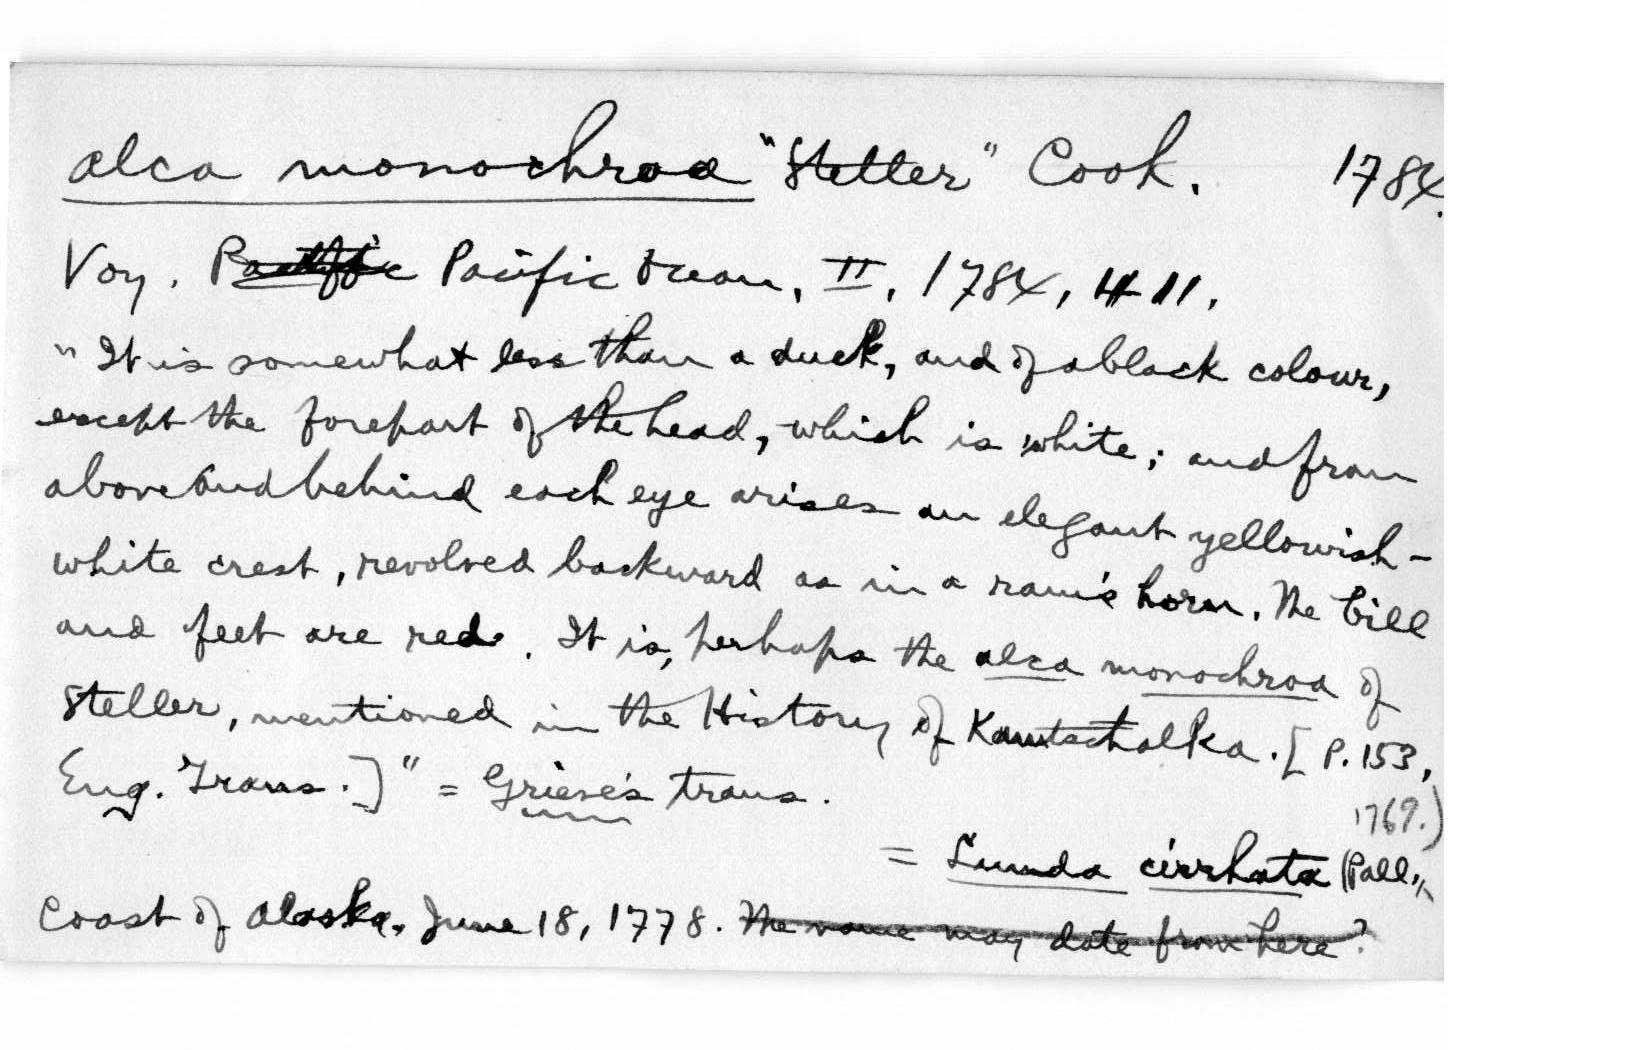 alca monochroa "Steller" Cook. 1784.
Voy. Pacific Pacific Ocean, II, 1784, 411.
"It is somewhat less than a duck, and of a black colour,
except the forepart of the head, which is white; and from
above and behind each eye arises an elegant yellowish-
white crest, revolved backward as in a ram's horn. The bill
and feet are red. It is, perhaps the alca monochroa of
Steller, mentioned in the History of Kamtschatka. [P. 153,
Eng. Trans.]" = Grieve's trans.
1769.)
= Lunda cirrhata (Pall.,
Coast of Alaska, June 18, 1778. The name may date from here?